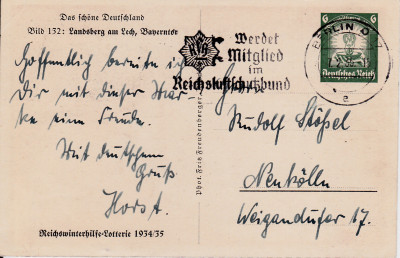 Das schöne Deutschland
Bild 132: Landsberg am Lech, Bayerntor
Hoffentlich bereite ich
Dir mit dieser Kar-
te eine Freude.
Mit deutschem
Gruß
Horst.
Reichswinterhilfe-Lotterie 1934/35
Phot. Fritz Freudenberger
RLB
Werdet
Mitglied
im
Reichsluftschutzbund
6 6
Deutsches Reich
BERLIN O
e
Rudolf Stößel
Neukölln
Weigandufer 17.